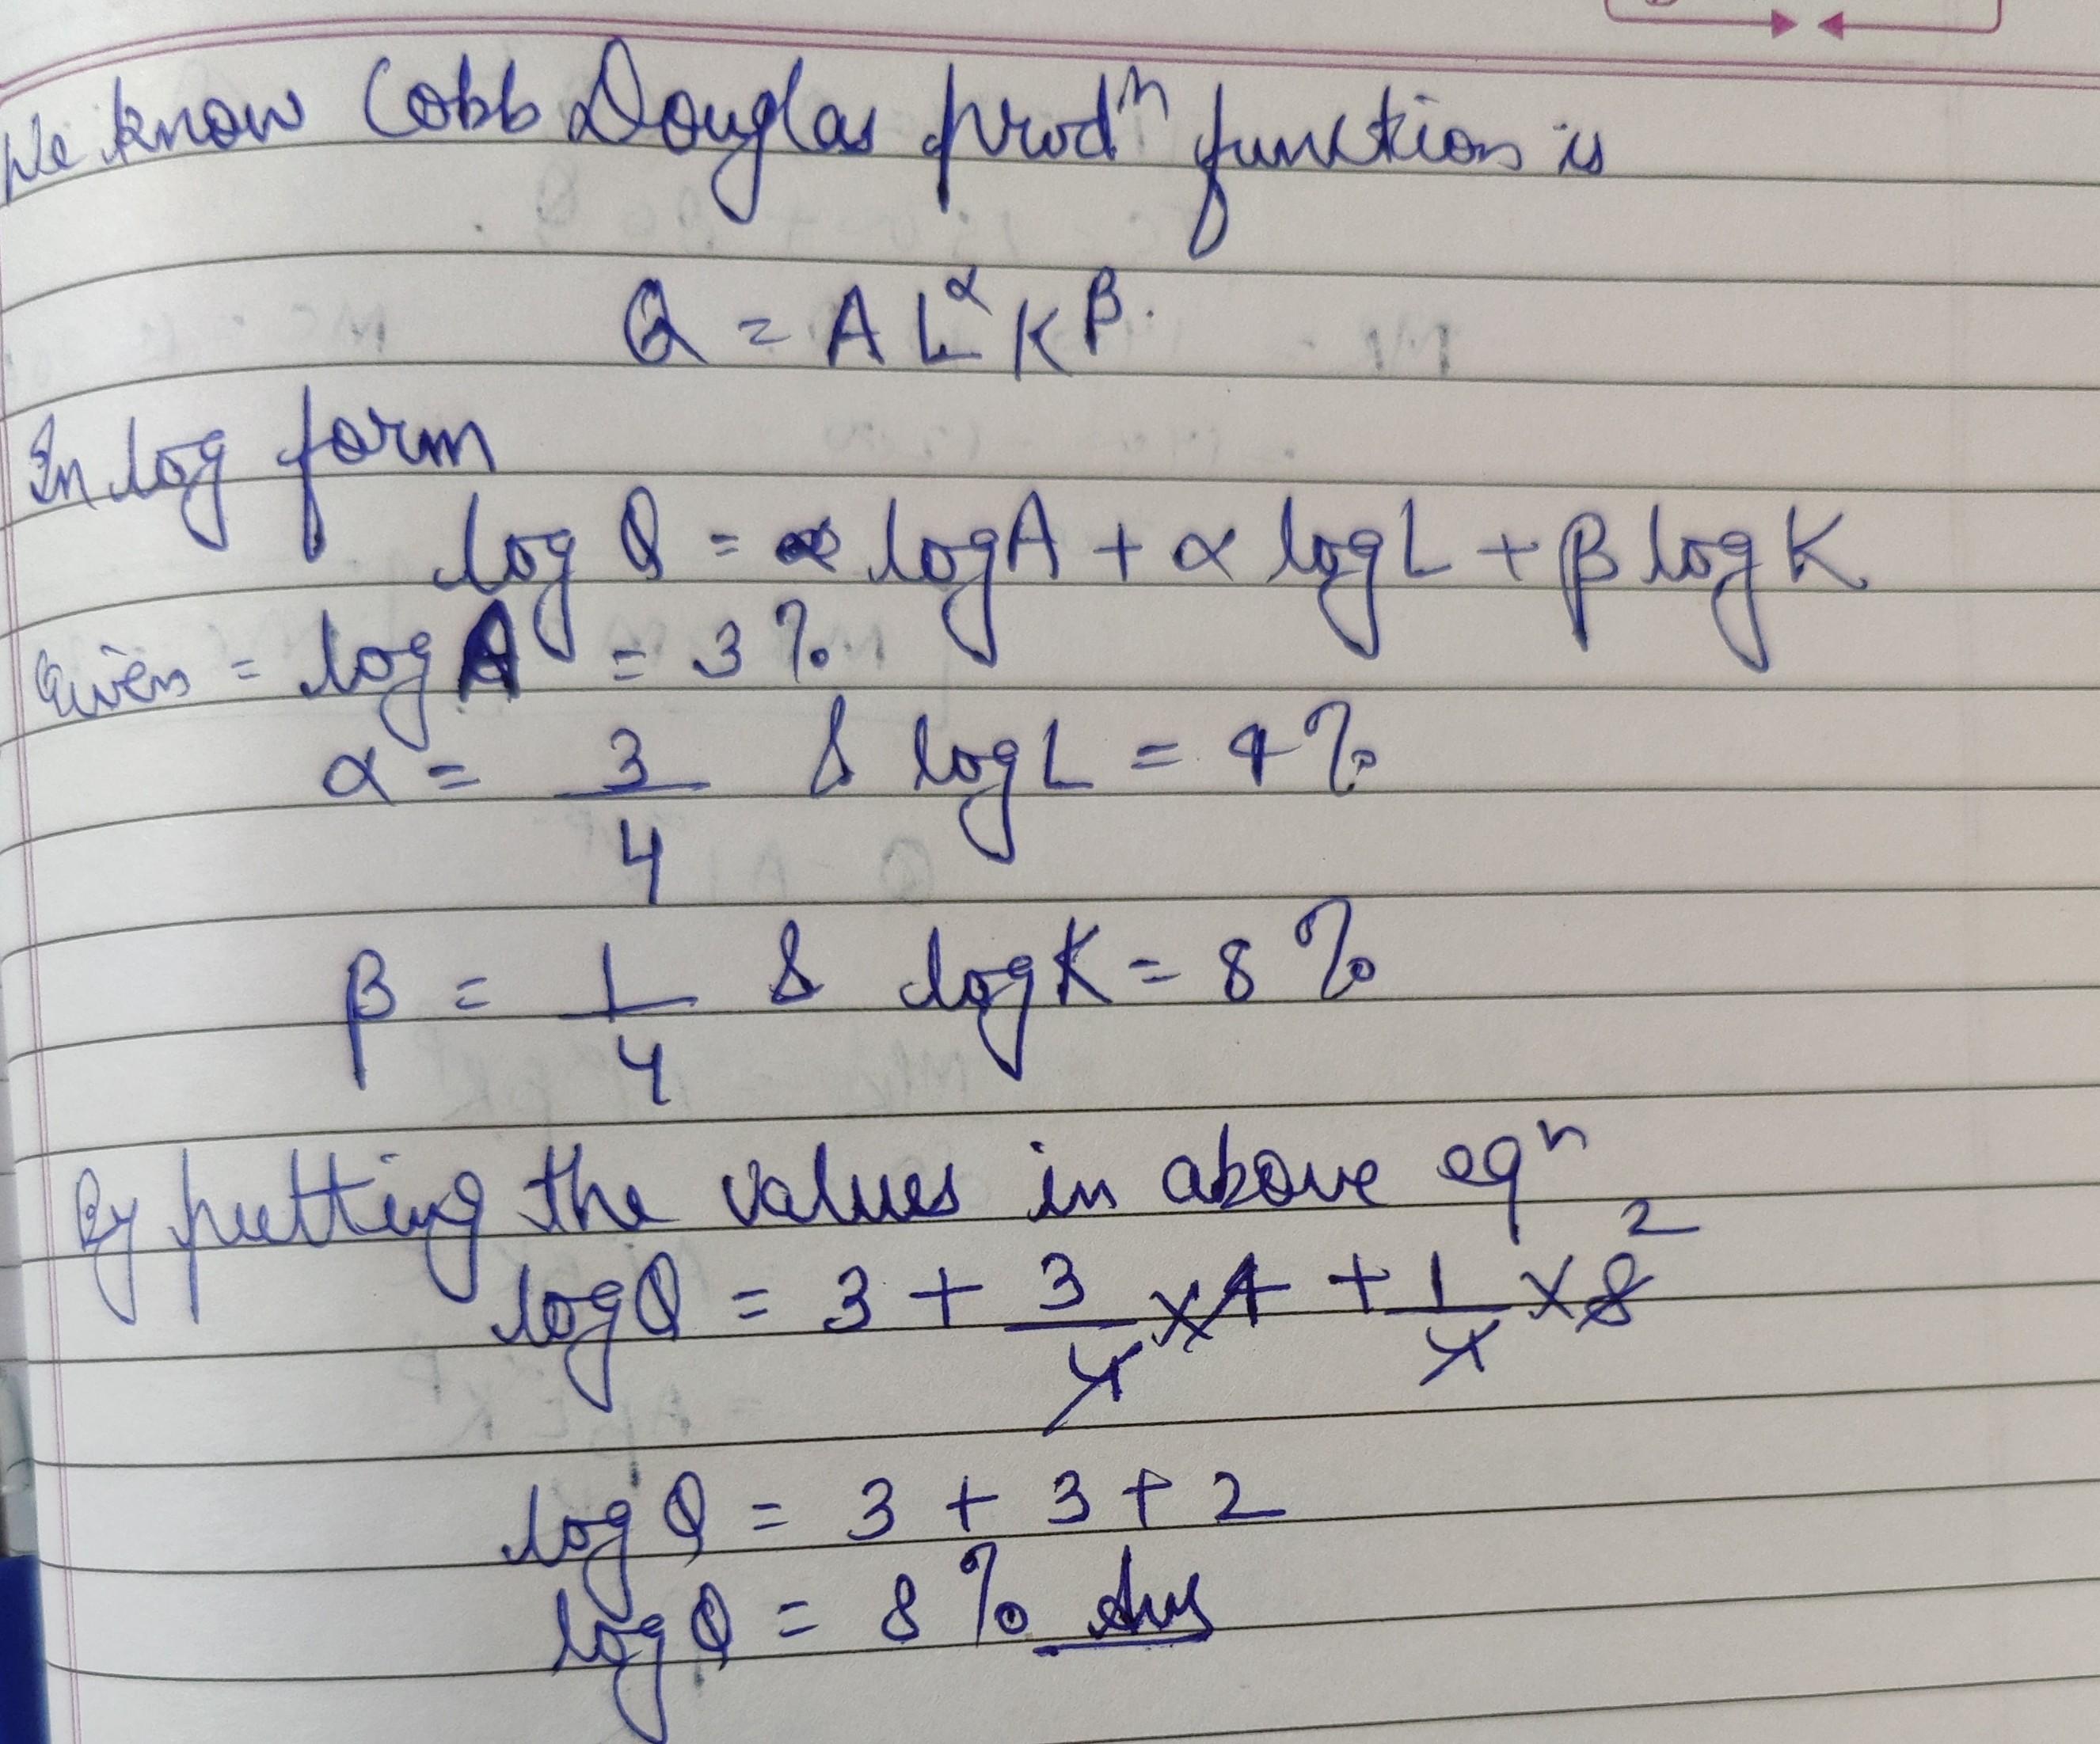 We know Cobb Douglas prodⁿ function is
Q = A L^α K^β.
In log form
log Q = log A + α log L + β log K
Given = log A = 3 %
α = 3/4 & log L = 4 %
β = 1/4 & log K = 8 %
By putting the values in above eqⁿ
log Q = 3 + 3/4 × 4 + 1/4 × 8 2
log Q = 3 + 3 + 2
log Q = 8 % Ans